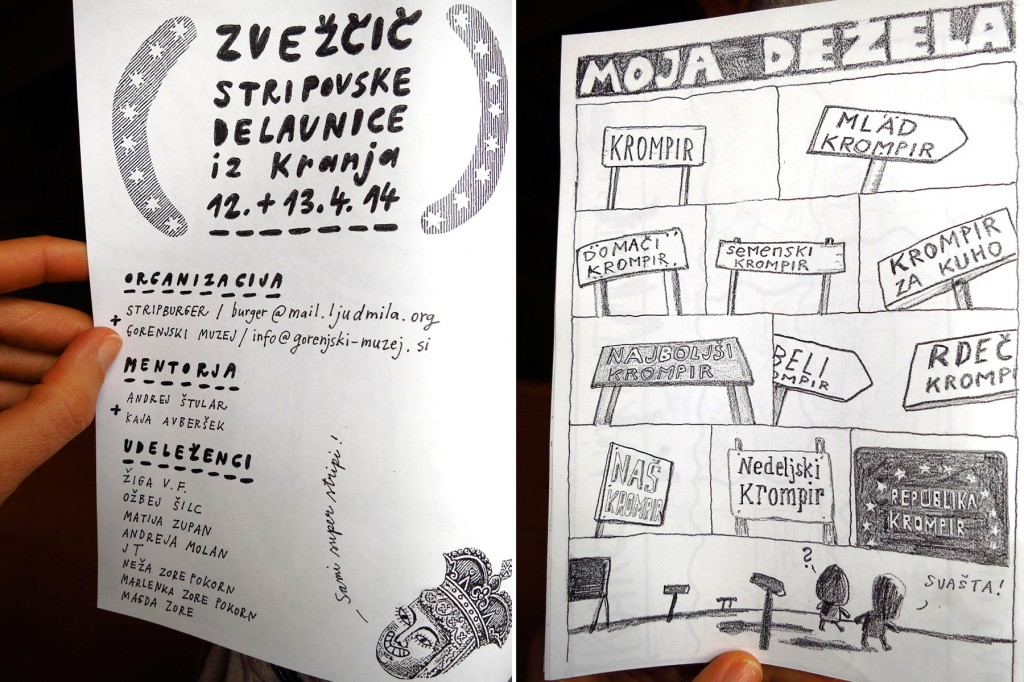 ZVEŽČIČ
STRIPOVSKE
DELAVNICE
iz Kranja
12. + 13. 4. 14
ORGANIZACIJA
+ STRIPBURGER / burger@mail.ljudmila.org
GORENJSKI MUZEJ / info@gorenjski-muzej.si
MENTORJA
+ ANDREJ ŠTULAR
KAJA AVBERŠEK
UDELEŽENCI
ŽIGA V.F.
OŽBEJ ŠILC
MATIJA ZUPAN
ANDREJA MOLAN
JT
NEŽA ZORE POKORN
MARLENKA ZORE POKORN
MAGDA ZORE
Sami super stripi!
MOJA DEŽELA
KROMPIR
MLAD
KROMPIR
DOMAČI
KROMPIR.
semenski
KROMPIR
KROMPIR
ZA KUHO
NAJBOLJŠI
KROMPIR
BELI
OMPIR
RDEČ
KROMP
NAŠ
KROMPIR
Nedeljski
Krompir
REPUBLIKA
KROMPIR
?
SVAŠTA!